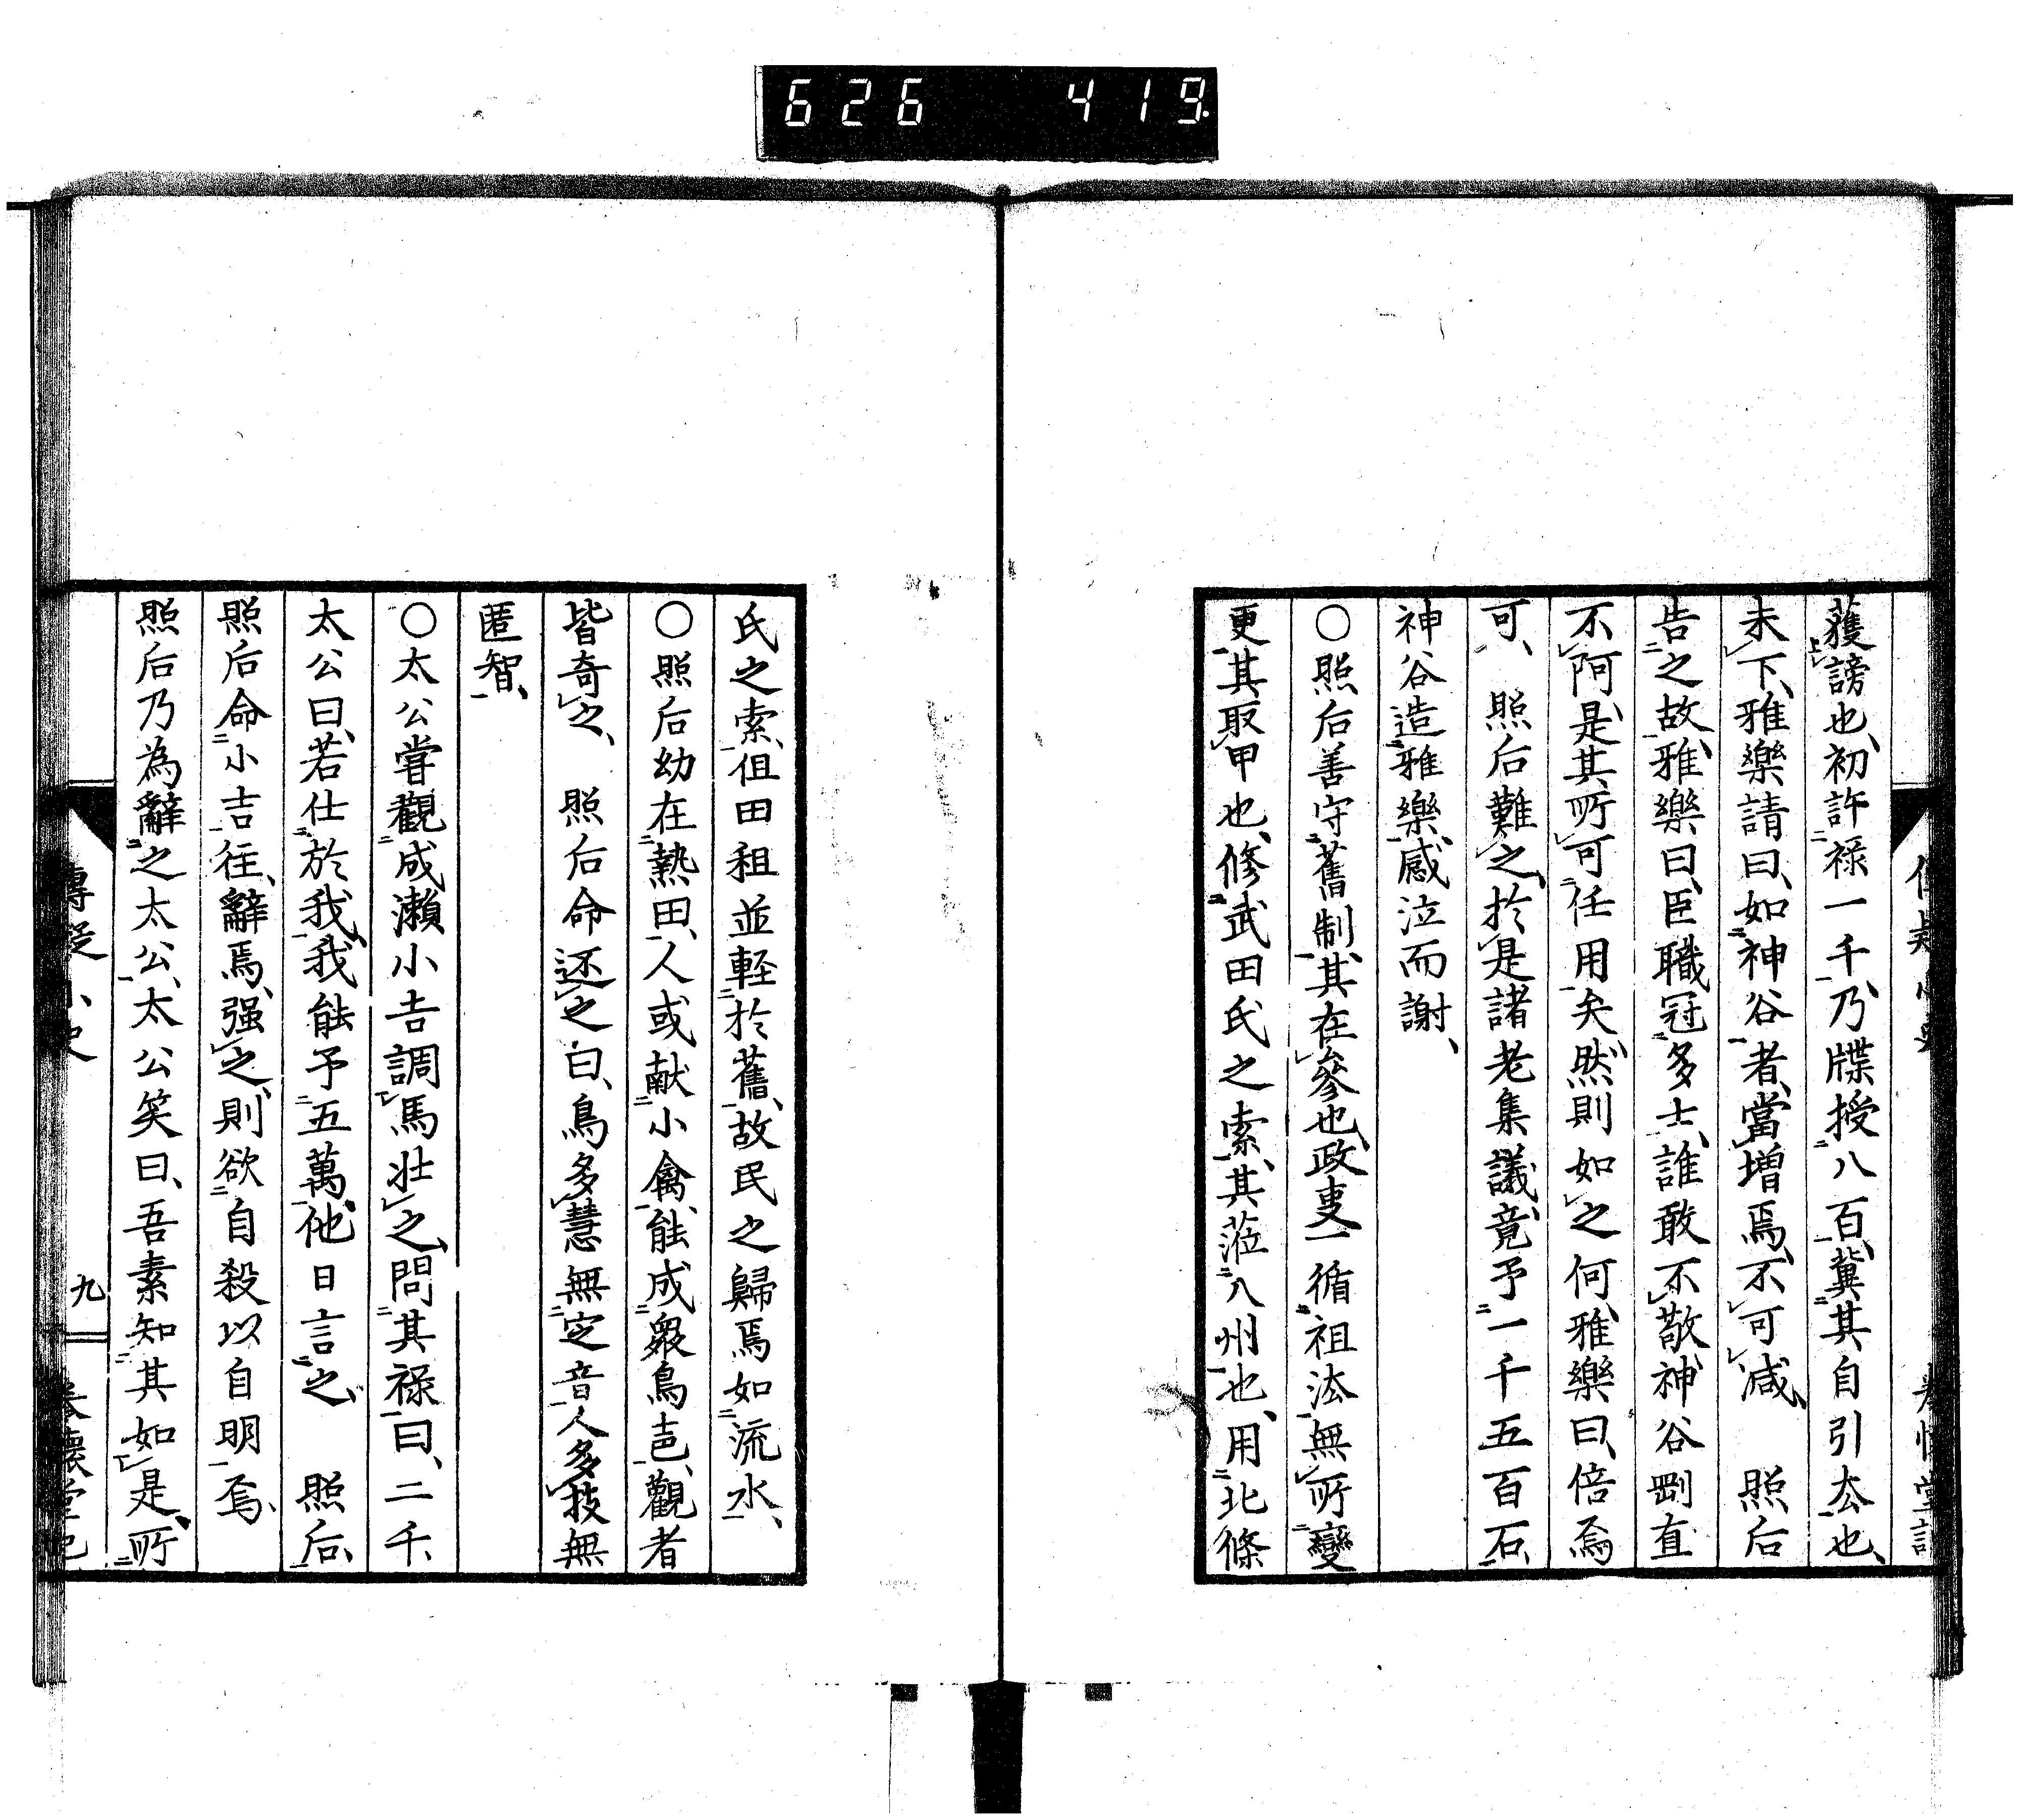 626 419
獲謗也、初許祿一千、乃牒授八百、冀其自引去也、
未下、雅樂請曰、如神谷者、當增焉、不可減、 照后
告之故、雅樂曰、臣職冠多士、誰敢不敬、神谷剛直
不阿、是其所可任用矣、然則如之何、雅樂曰、倍焉
可、 照后難之、於是諸老集議、竟予一千五百石、
神谷造雅樂、感泣而謝、
○照后善守舊制、其在參也、政事一循祖法、無所變
更、其取甲也、修武田氏之索、其蒞八州也、用北條
氏之索、伹田租並輕於舊、故民之歸焉如流水、
○照后幼在熱田、人或献小禽、能成衆鳥㐖、觀者
皆奇之、 照后命还之曰、鳥多慧無定音、人多技無
匿智、
○太公甞觀成瀬小吉調馬壯之、問其祿、曰、二千、
太公曰、若仕於我、我能予五萬、他日言之 照后、
照后命小吉往、辭焉、强之、則欲自殺以自明焉、
照后乃為辭之太公、太公笑曰、吾素知其如是、所
傳疑小史
九